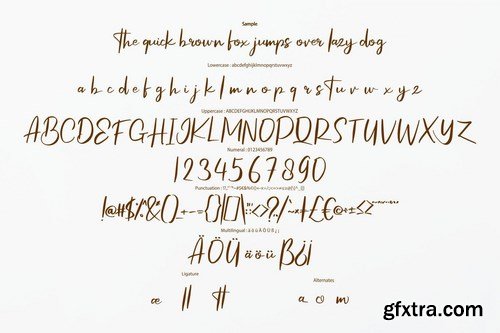 Sample
the quick brown fox jumps over lazy dog
Lowercase : abcdefghijklmnopqrstuvwxyz
a b c d e f g h i j k l m n o p q r s t u v w x y z
Uppercase : ABCDEFGHIJKLMNOPQRSTUVWXYZ
ABCDEFGHIJKLMNOPQRSTUVWXYZ
Numeral : 0123456789
1234567890
Punctuation :
Multilingual : ä ö ü Ä Ö Ü ß ¿ ¡
ÄÖÜ äöü ß¿¡
Ligature
Alternates
æ ll tt
a o m
gfxtra.com